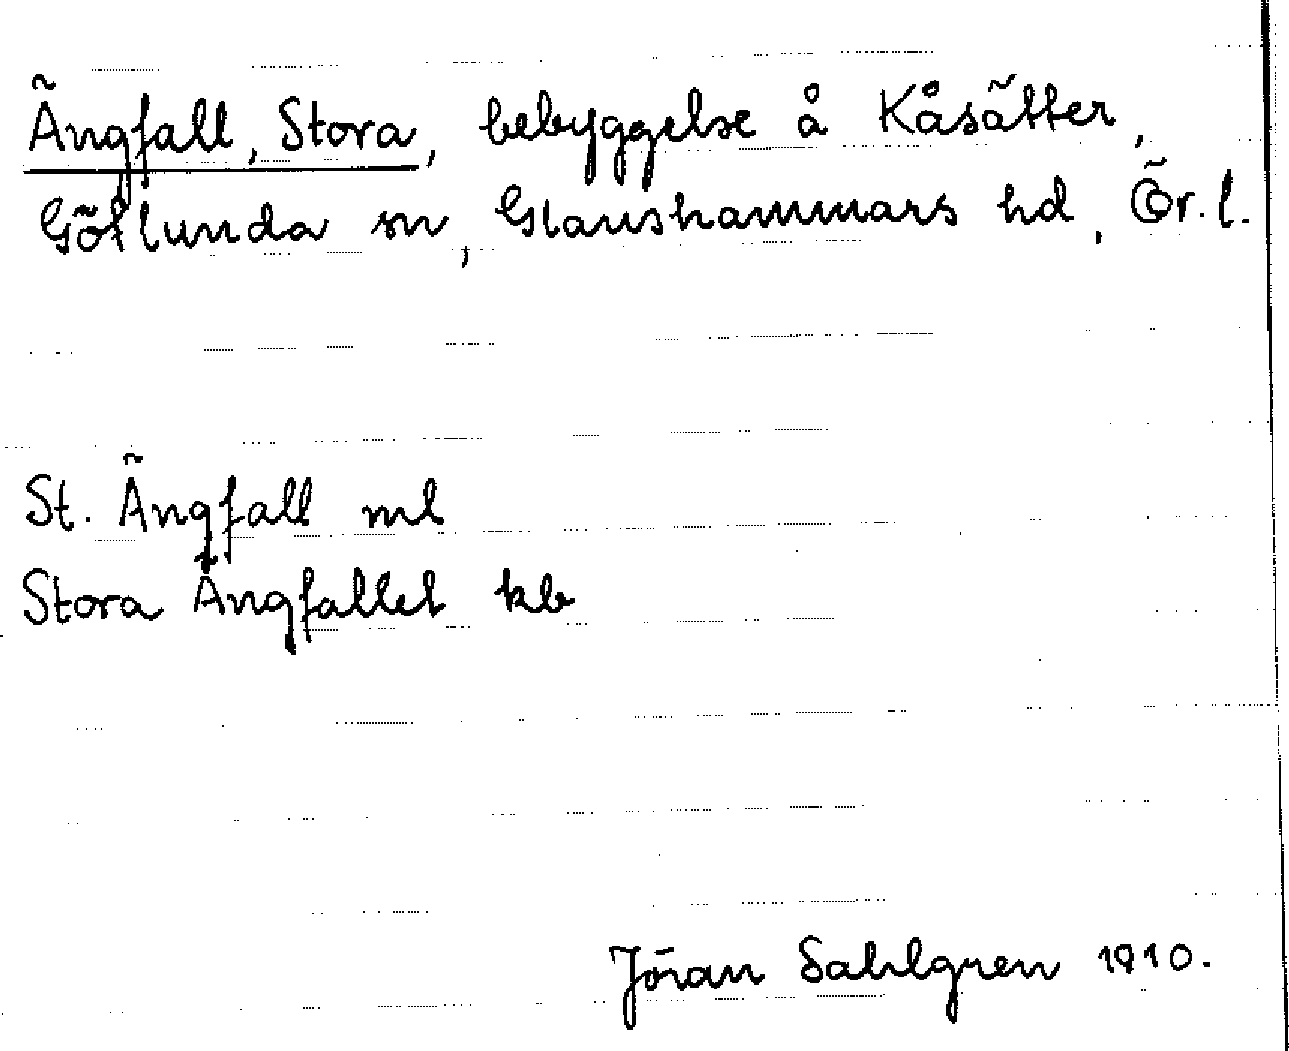 Ängfall, Stora, bebyggelse å Kåsätter,
Götlunda sn, Glanshammars hd, Ör. l.
St. Ängfall ml
Stora Ängfallet kb
Jöran Sahlgren 1910.